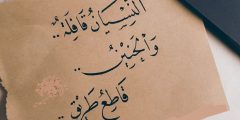 النِّسْيَانُ قَافِلَةٌ..
وَالحَنِينُ..
قَاطِعُ طَرِيقٍ..